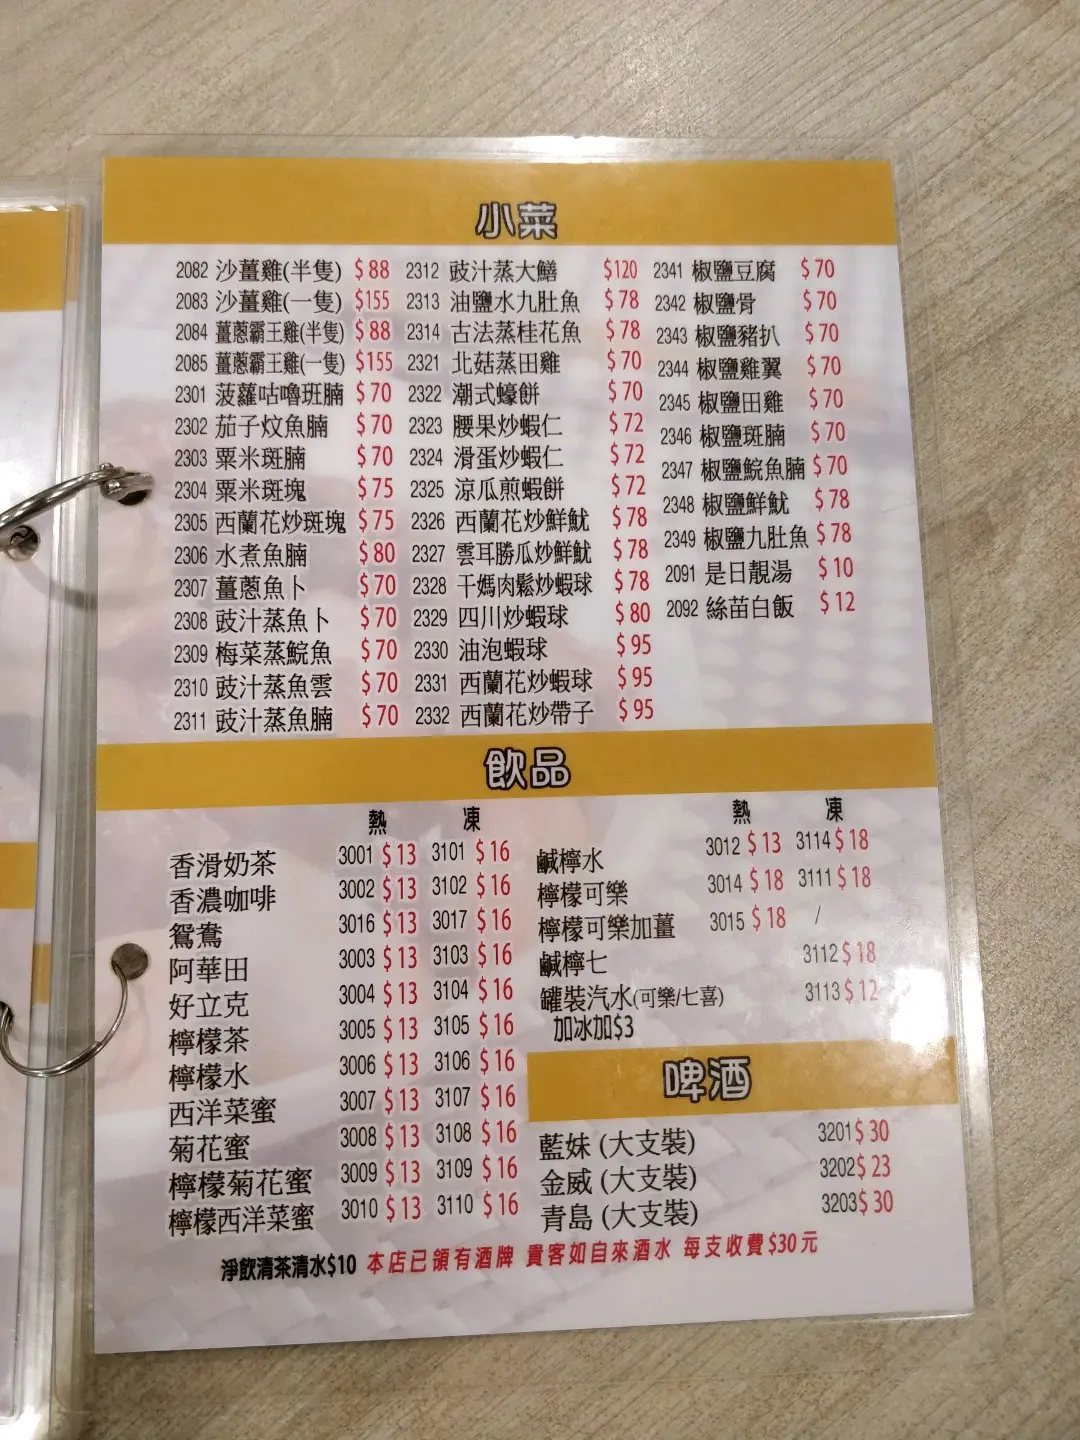 小菜
2082 沙薑雞(半隻) $88
2083 沙薑雞(一隻) $155
2084 薑蔥霸王雞(半隻) $88
2085 薑蔥霸王雞(一隻) $155
2301 菠蘿咕嚕班腩 $70
2302 茄子炆魚腩 $70
2303 粟米斑腩 $70
2304 粟米斑塊 $75
2305 西蘭花炒斑塊 $75
2306 水煮魚腩 $80
2307 薑蔥魚卜 $70
2308 豉汁蒸魚卜 $70
2309 梅菜蒸鯇魚 $70
2310 豉汁蒸魚雲 $70
2311 豉汁蒸魚腩 $70
2312 豉汁蒸大鱔 $120
2313 油鹽水九肚魚 $78
2314 古法蒸桂花魚 $78
2321 北菇蒸田雞 $70
2322 潮式蠔餅 $70
2323 腰果炒蝦仁 $72
2324 滑蛋炒蝦仁 $72
2325 涼瓜煎蝦餅 $72
2326 西蘭花炒鮮魷 $78
2327 雲耳勝瓜炒鮮魷 $78
2328 干媽肉鬆炒蝦球 $78
2329 四川炒蝦球 $80
2330 油泡蝦球 $95
2331 西蘭花炒蝦球 $95
2332 西蘭花炒帶子 $95
2341 椒鹽豆腐 $70
2342 椒鹽骨 $70
2343 椒鹽豬扒 $70
2344 椒鹽雞翼 $70
2345 椒鹽田雞 $70
2346 椒鹽斑腩 $70
2347 椒鹽鯇魚腩 $70
2348 椒鹽鮮魷 $78
2349 椒鹽九肚魚 $78
2091 是日靚湯 $10
2092 絲苗白飯 $12
飲品
熱 凍
香滑奶茶 3001 $13 3101 $16
香濃咖啡 3002 $13 3102 $16
鴛鴦 3016 $13 3017 $16
阿華田 3003 $13 3103 $16
好立克 3004 $13 3104 $16
檸檬茶 3005 $13 3105 $16
檸檬水 3006 $13 3106 $16
西洋菜蜜 3007 $13 3107 $16
菊花蜜 3008 $13 3108 $16
檸檬菊花蜜 3009 $13 3109 $16
檸檬西洋菜蜜 3010 $13 3110 $16
熱 凍
鹹檸水 3012 $13 3114 $18
檸檬可樂 3014 $18 3111 $18
檸檬可樂加薑 3015 $18 /
鹹檸七 3112 $18
罐裝汽水(可樂/七喜) 3113 $12
加冰加$3
啤酒
藍妹 (大支裝) 3201 $30
金威 (大支裝) 3202 $23
青島 (大支裝) 3203 $30
淨飲清茶清水$10 本店已領有酒牌 貴客如自來酒水 每支收費$30元